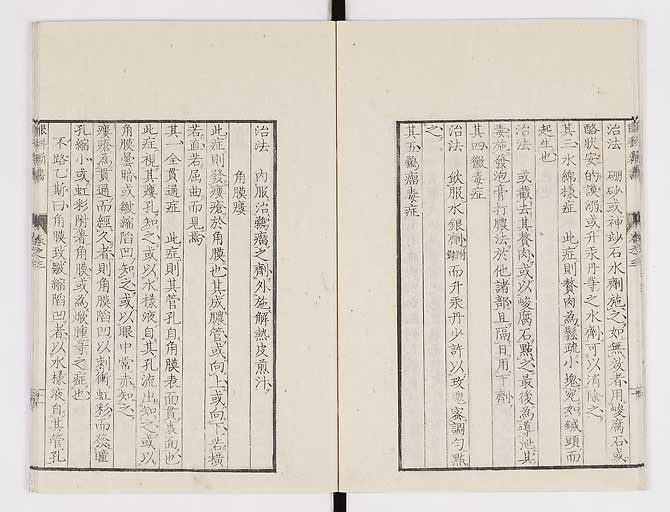 治法　硼砂或神砂石水劑施之、如無效者、用峻腐石或
酪狀安的謨溺、或升汞丹等之水劑、可以消除之、
其三、水綿樣症　此症則贅肉為鬆疏小塊、宛如鍼頭而
起生也、
治法　或截去其贅肉、或以峻腐石點之、最後為導泄、其
毒施發泡膏打膿法於他諸部、且隔日用下劑、
其四、黴毒症
治法　飲服水銀劑、而升汞丹少許、以玫瑰蜜調勻點
之、
其五、鸛瘤毒症
治法　內服治鸛瘤之劑、外施解熱皮煎汁、
角膜瘻
此症則發瘻瘡於角膜也、其成膿管、或向上、或向下、若橫
若直、若屈曲、而見焉、
其一、全貫通症　此症則其管孔自角膜表面貫裏面也、
此症視其瘻孔、知之、或以水樣液自其孔流出、知之、或以
角膜曇暗、或皺縮陷凹、知之、或以眼中常赤、知之、
瘻瘡為貫通而經久者、則角膜陷凹、以刺衝虹彩、而發瞳
孔縮小、或虹彩附著角膜、或為焮腫等之症也、
不路乙斯曰、角膜致皺縮陷凹者、以水樣液自其管孔